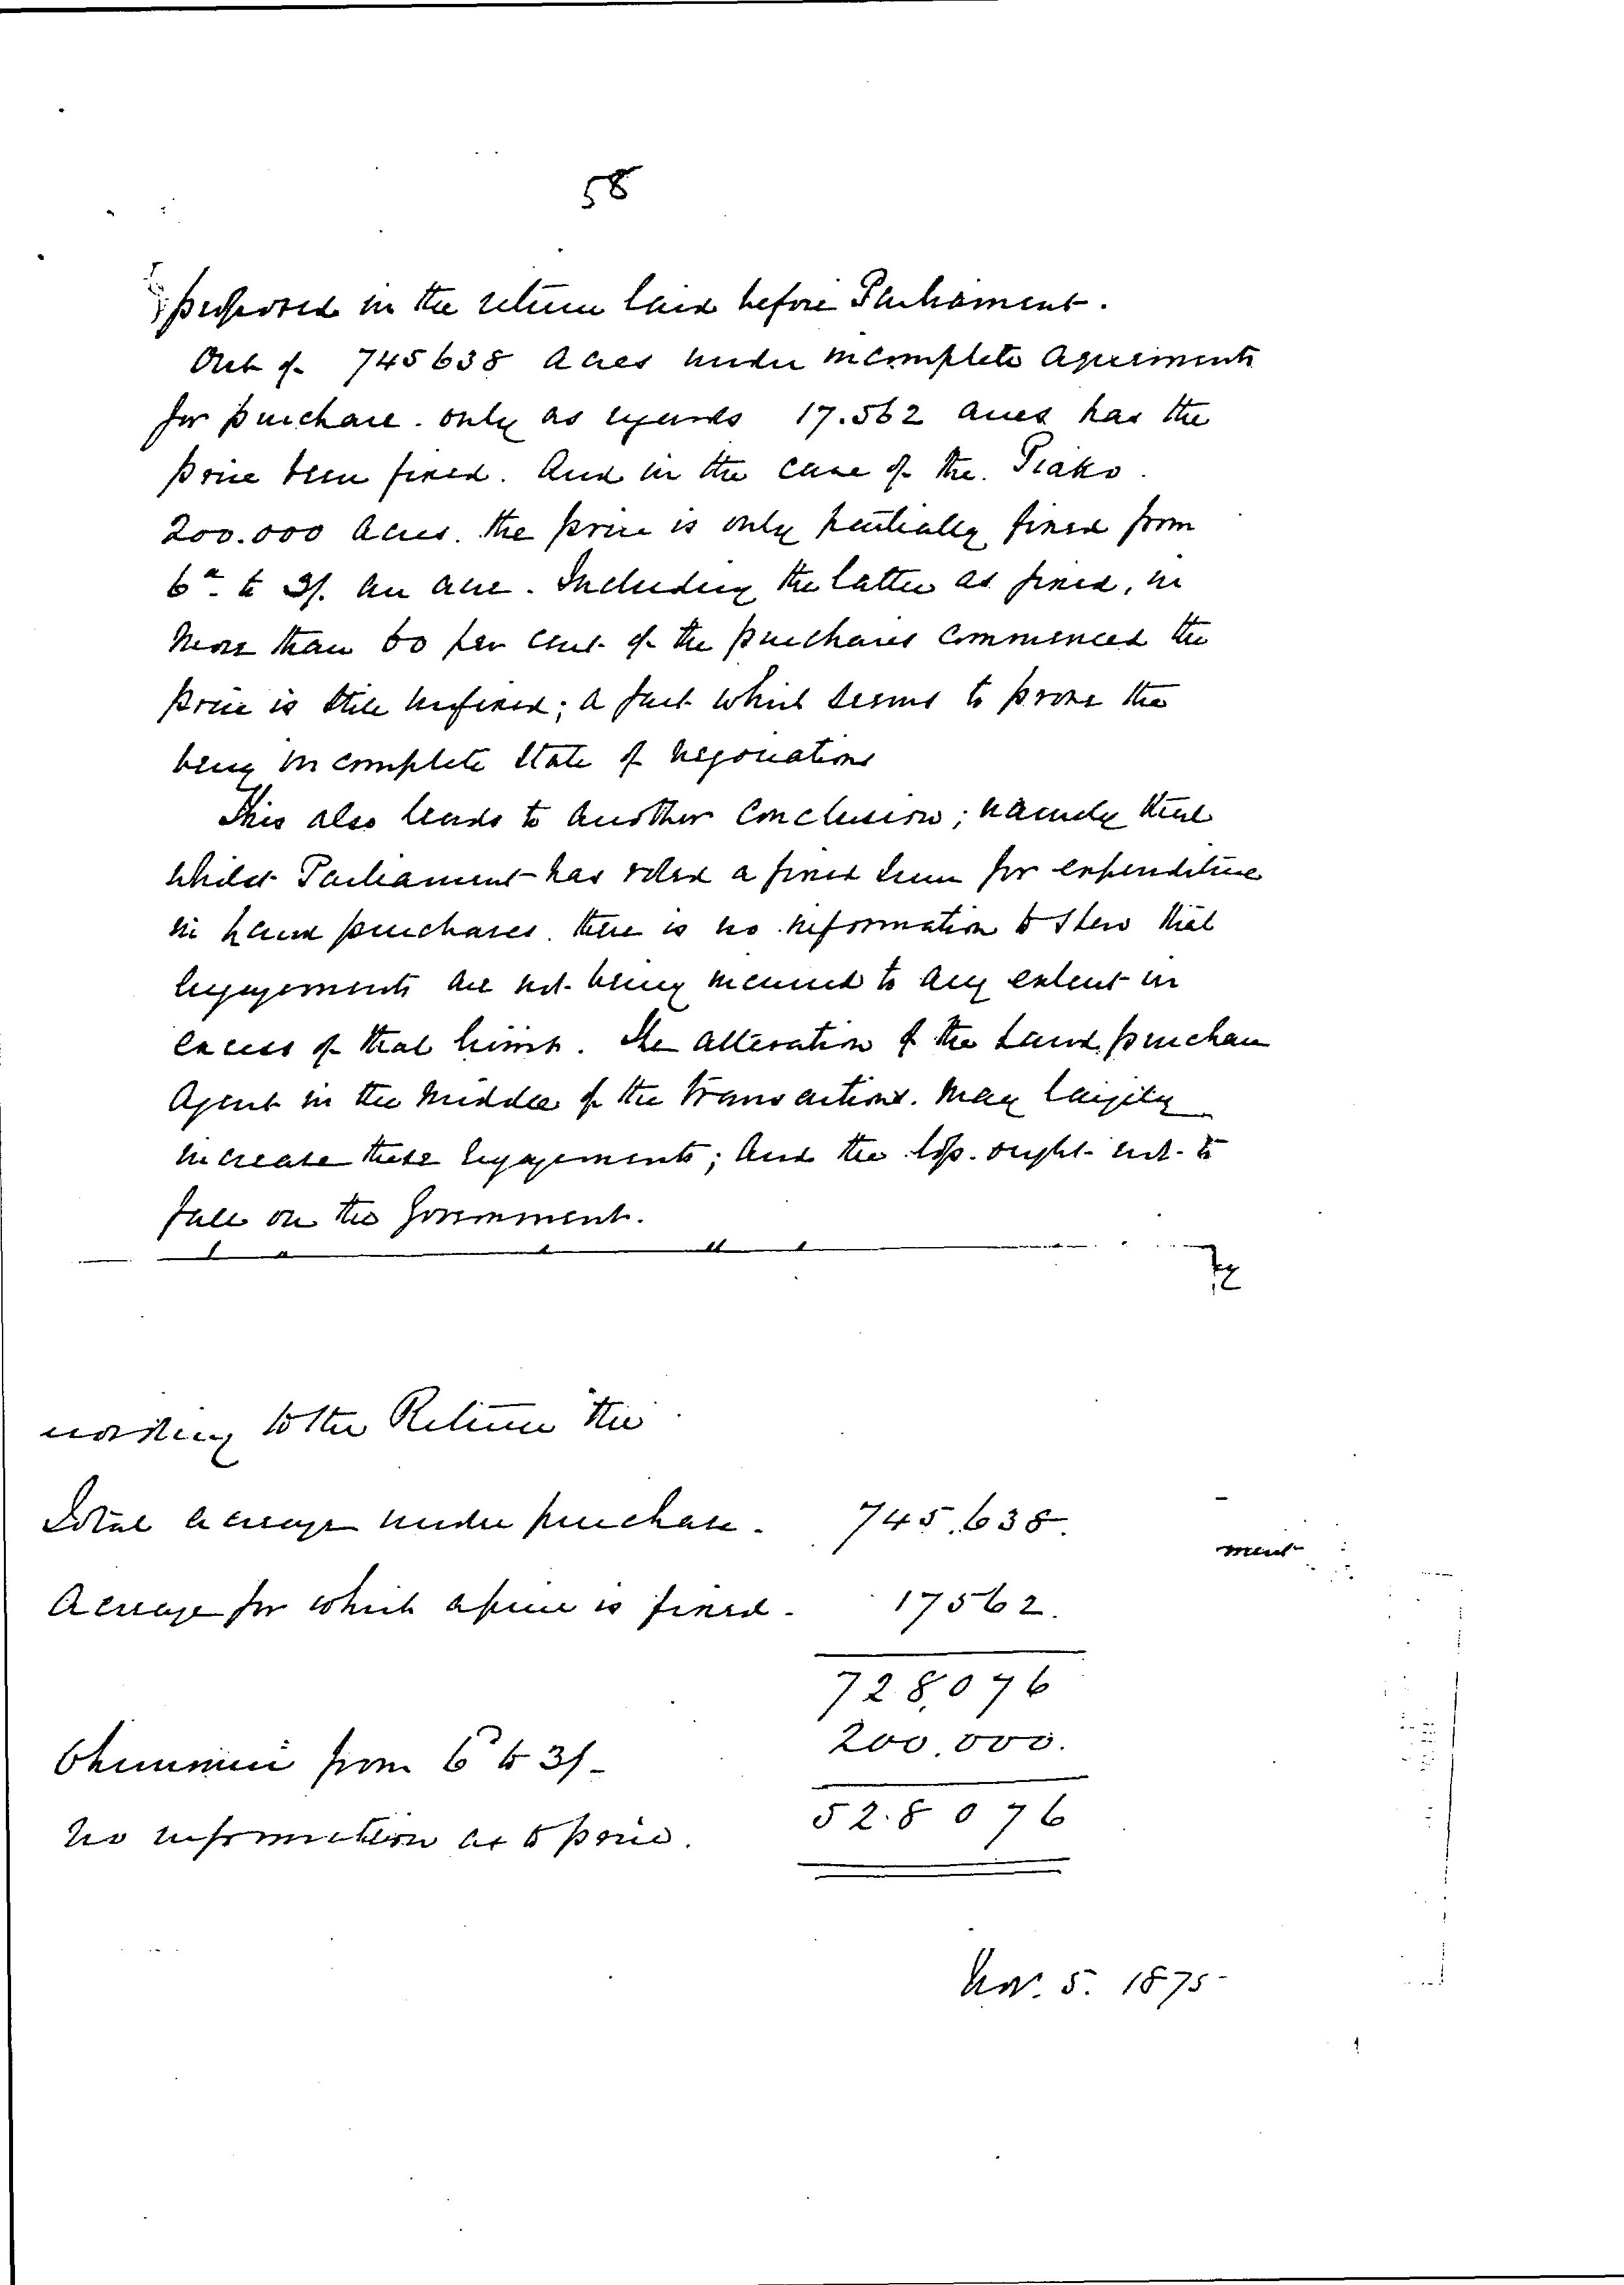 58
proposed in the return laid before Parliament.
Out of 745638 acres under incomplete agreements
for purchase. only as regards 17.562 acres has the
price been fixed. And in the case of the. Piako.
200.000 acres. the price is only partially fixed from
6d. to 3/. an acre. Including the latter as fixed, in
more than 60 per cent. of the purchases commenced the
price is still unfixed; a fact which seems to prove the
being incomplete state of negotiations
This also leads to another conclusion; namely that
whilst Parliament has voted a fixed sum for expenditure
in land purchases. there is no information to shew that
engagements are not being incurred to any extent in
excess of that limit. The alteration of the Land purchase
Agent in the middle of the transactions. may largely
increase these engagements; and the loss. ought not to
fall on the Government.
to the Return the
Total acreage under purchase. 745,638.
ment
Acreage for which a price is fixed. 17562.
728,076
from 6d to 3/- 200.000.
528076
No information as to price.
Nov. 5. 1875